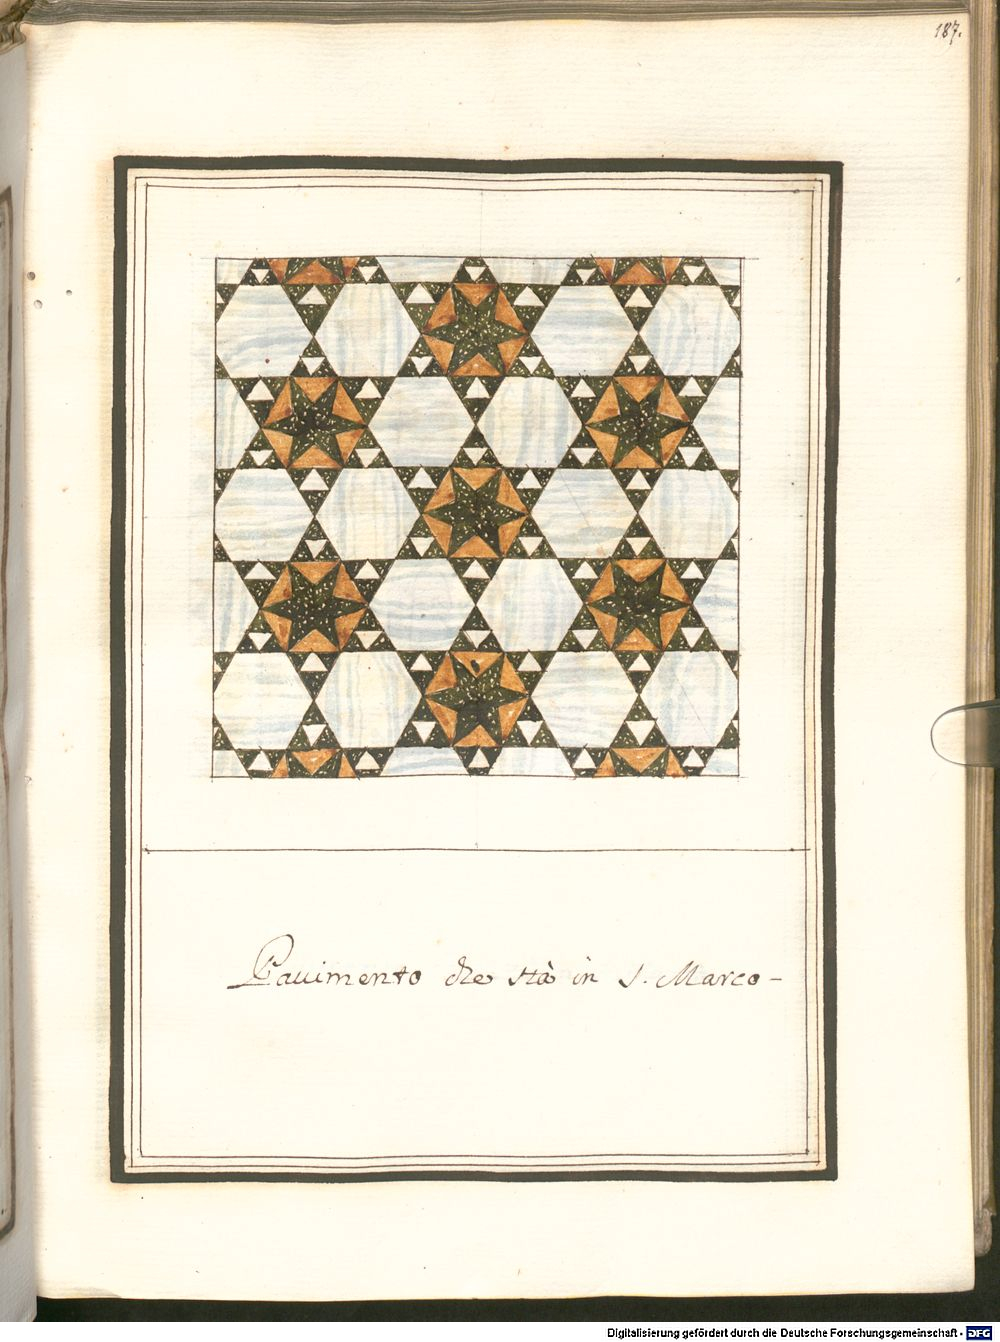 187.
Pauimento che stà in S. Marco -
Digitalisierung gefördert durch die Deutsche Forschungsgemeinschaft - DFG